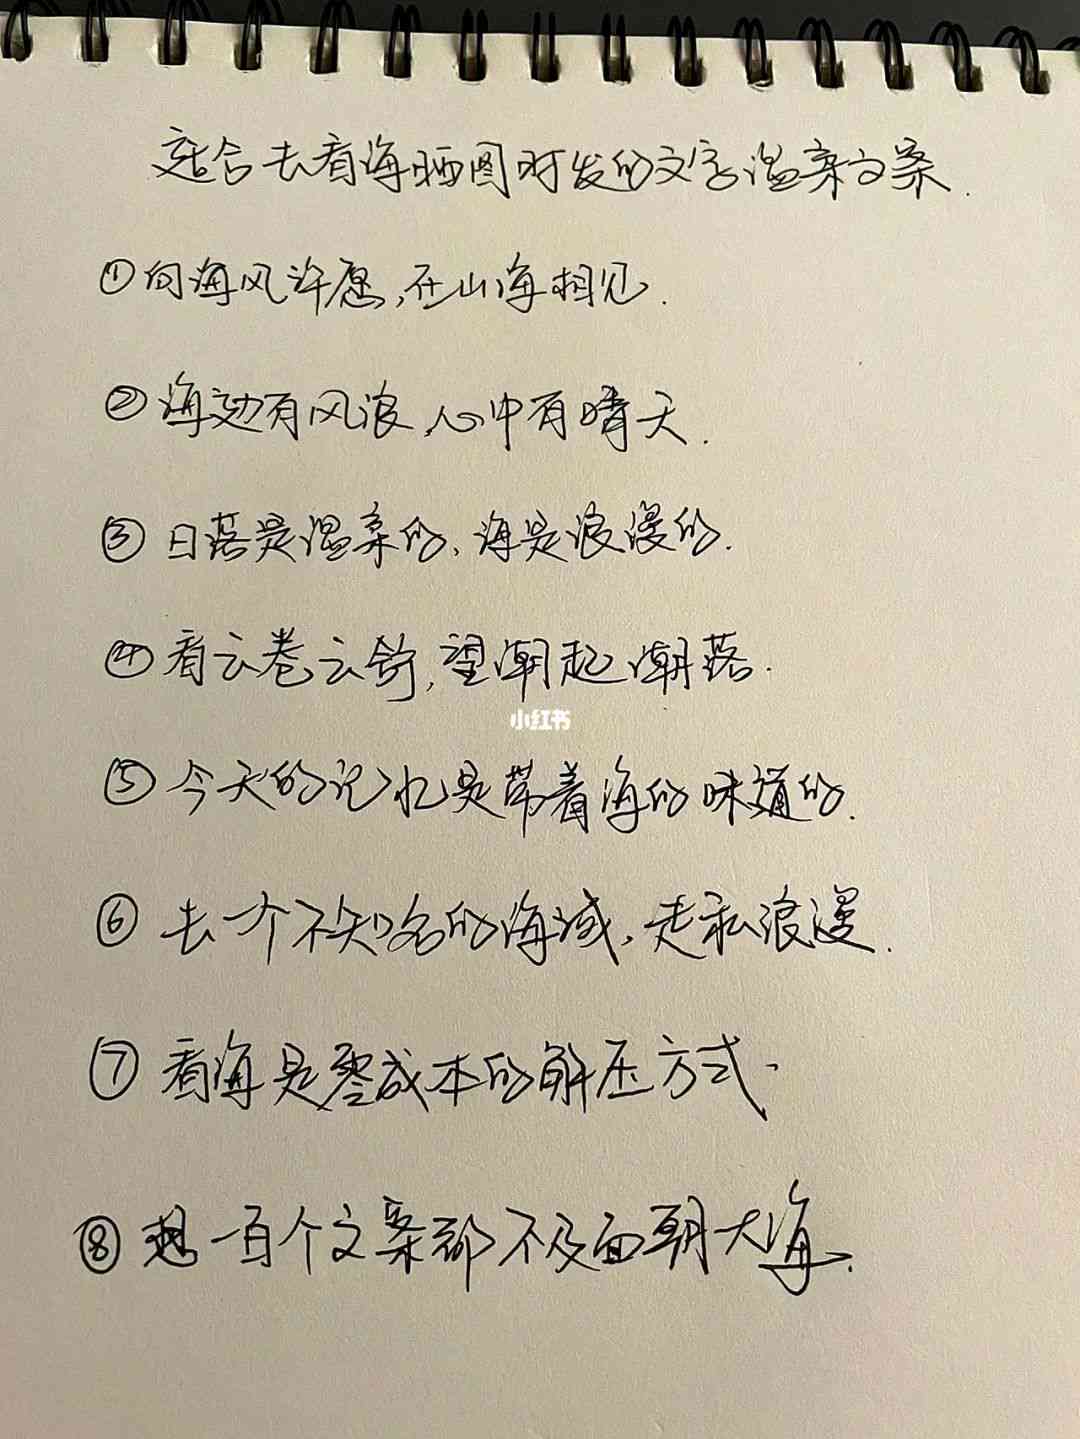 适合去看海晒图时发的文字温柔文案.
①向海风许愿,在山海相见.
②海边有风浪,心中有晴天.
③日落是温柔的,海是浪漫的.
④看云卷云舒,望潮起潮落.
小红书
⑤今天的记忆是带着海的味道的.
⑥去一个不知名的海域,走私浪漫.
⑦看海是零成本的解压方式.
⑧想一百个文案都不及面朝大海.